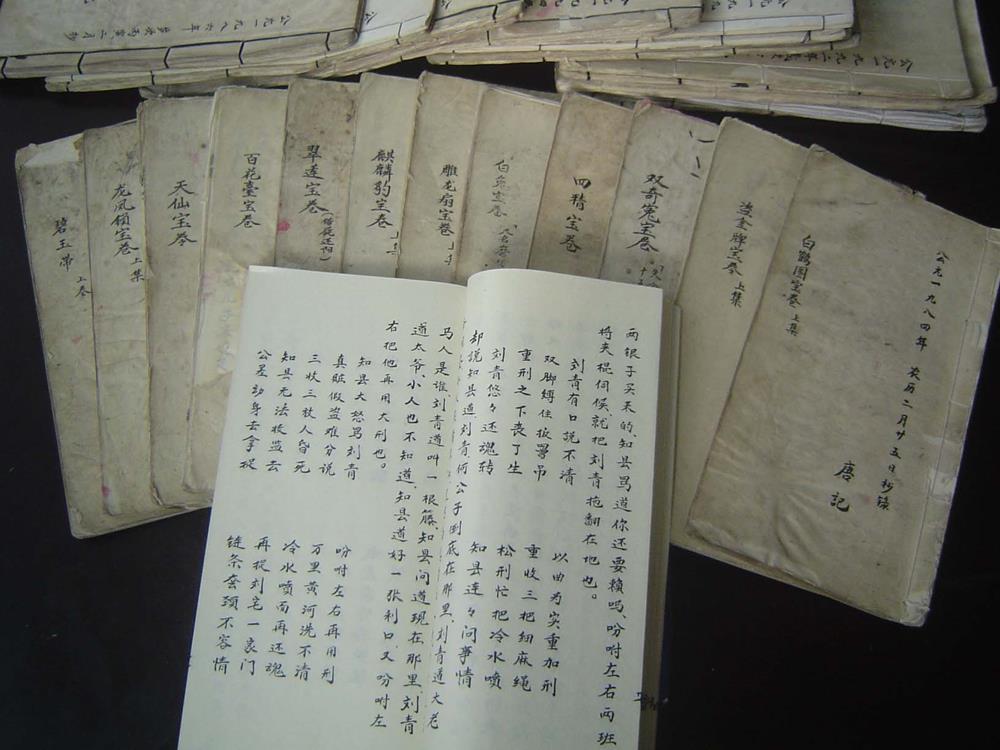 碧玉带
上卷
龙凤锁宝卷上集
天仙宝卷
百花臺宝卷
翠莲宝卷
麒麟豹宝卷
上集
雕龙扇宝卷
上
白兔宝卷
四精宝卷
双奇冤宝卷
金牌宝卷上集
白鹤图宝卷上集
公元一九八四年 农历二月廿五日抄录
唐記
两银子买来的,知县骂道你还要赖吗,吩咐左右两班
将夹棍伺候,就把刘青拖翻在地也。
刘青有口说不清 以曲为实重加刑
双脚缚住板凳吊 重收三把细麻绳
重刑之下丧了生 松刑忙把冷水喷
刘青悠々还魂转 知县连々问事情
却说知县道刘青何公子倒底在那里,刘青道大老
马人是谁,刘青道叫一根籐,知县问道现在那里,刘青
道太爷,小人也不知道,知县道好一张利口,又吩咐左
右把他再用大刑也。
知县大怒骂刘青 吩咐左右再用刑
真赃假盗难分说 万里黄河洗不清
三收三放人昏死 冷水喷面再还魂
知县无法收监去 再提刘宅一衷门
公差动身去拿捉 链条套颈不容情